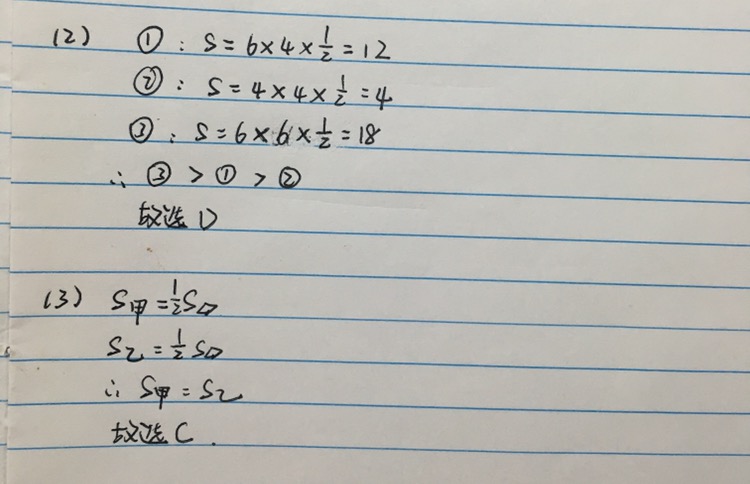 (2) ①: S=6×4×1/2=12
②: S=4×4×1/2=4
③: S=6×6×1/2=18
∴ ③>①>②
故选D
(3) S甲=1/2S▱
S乙=1/2S▱
∴ S甲=S乙
故选C.